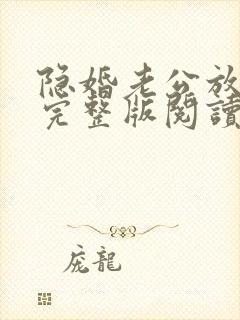 隐婚老公放
完整版閱讀
庞龍